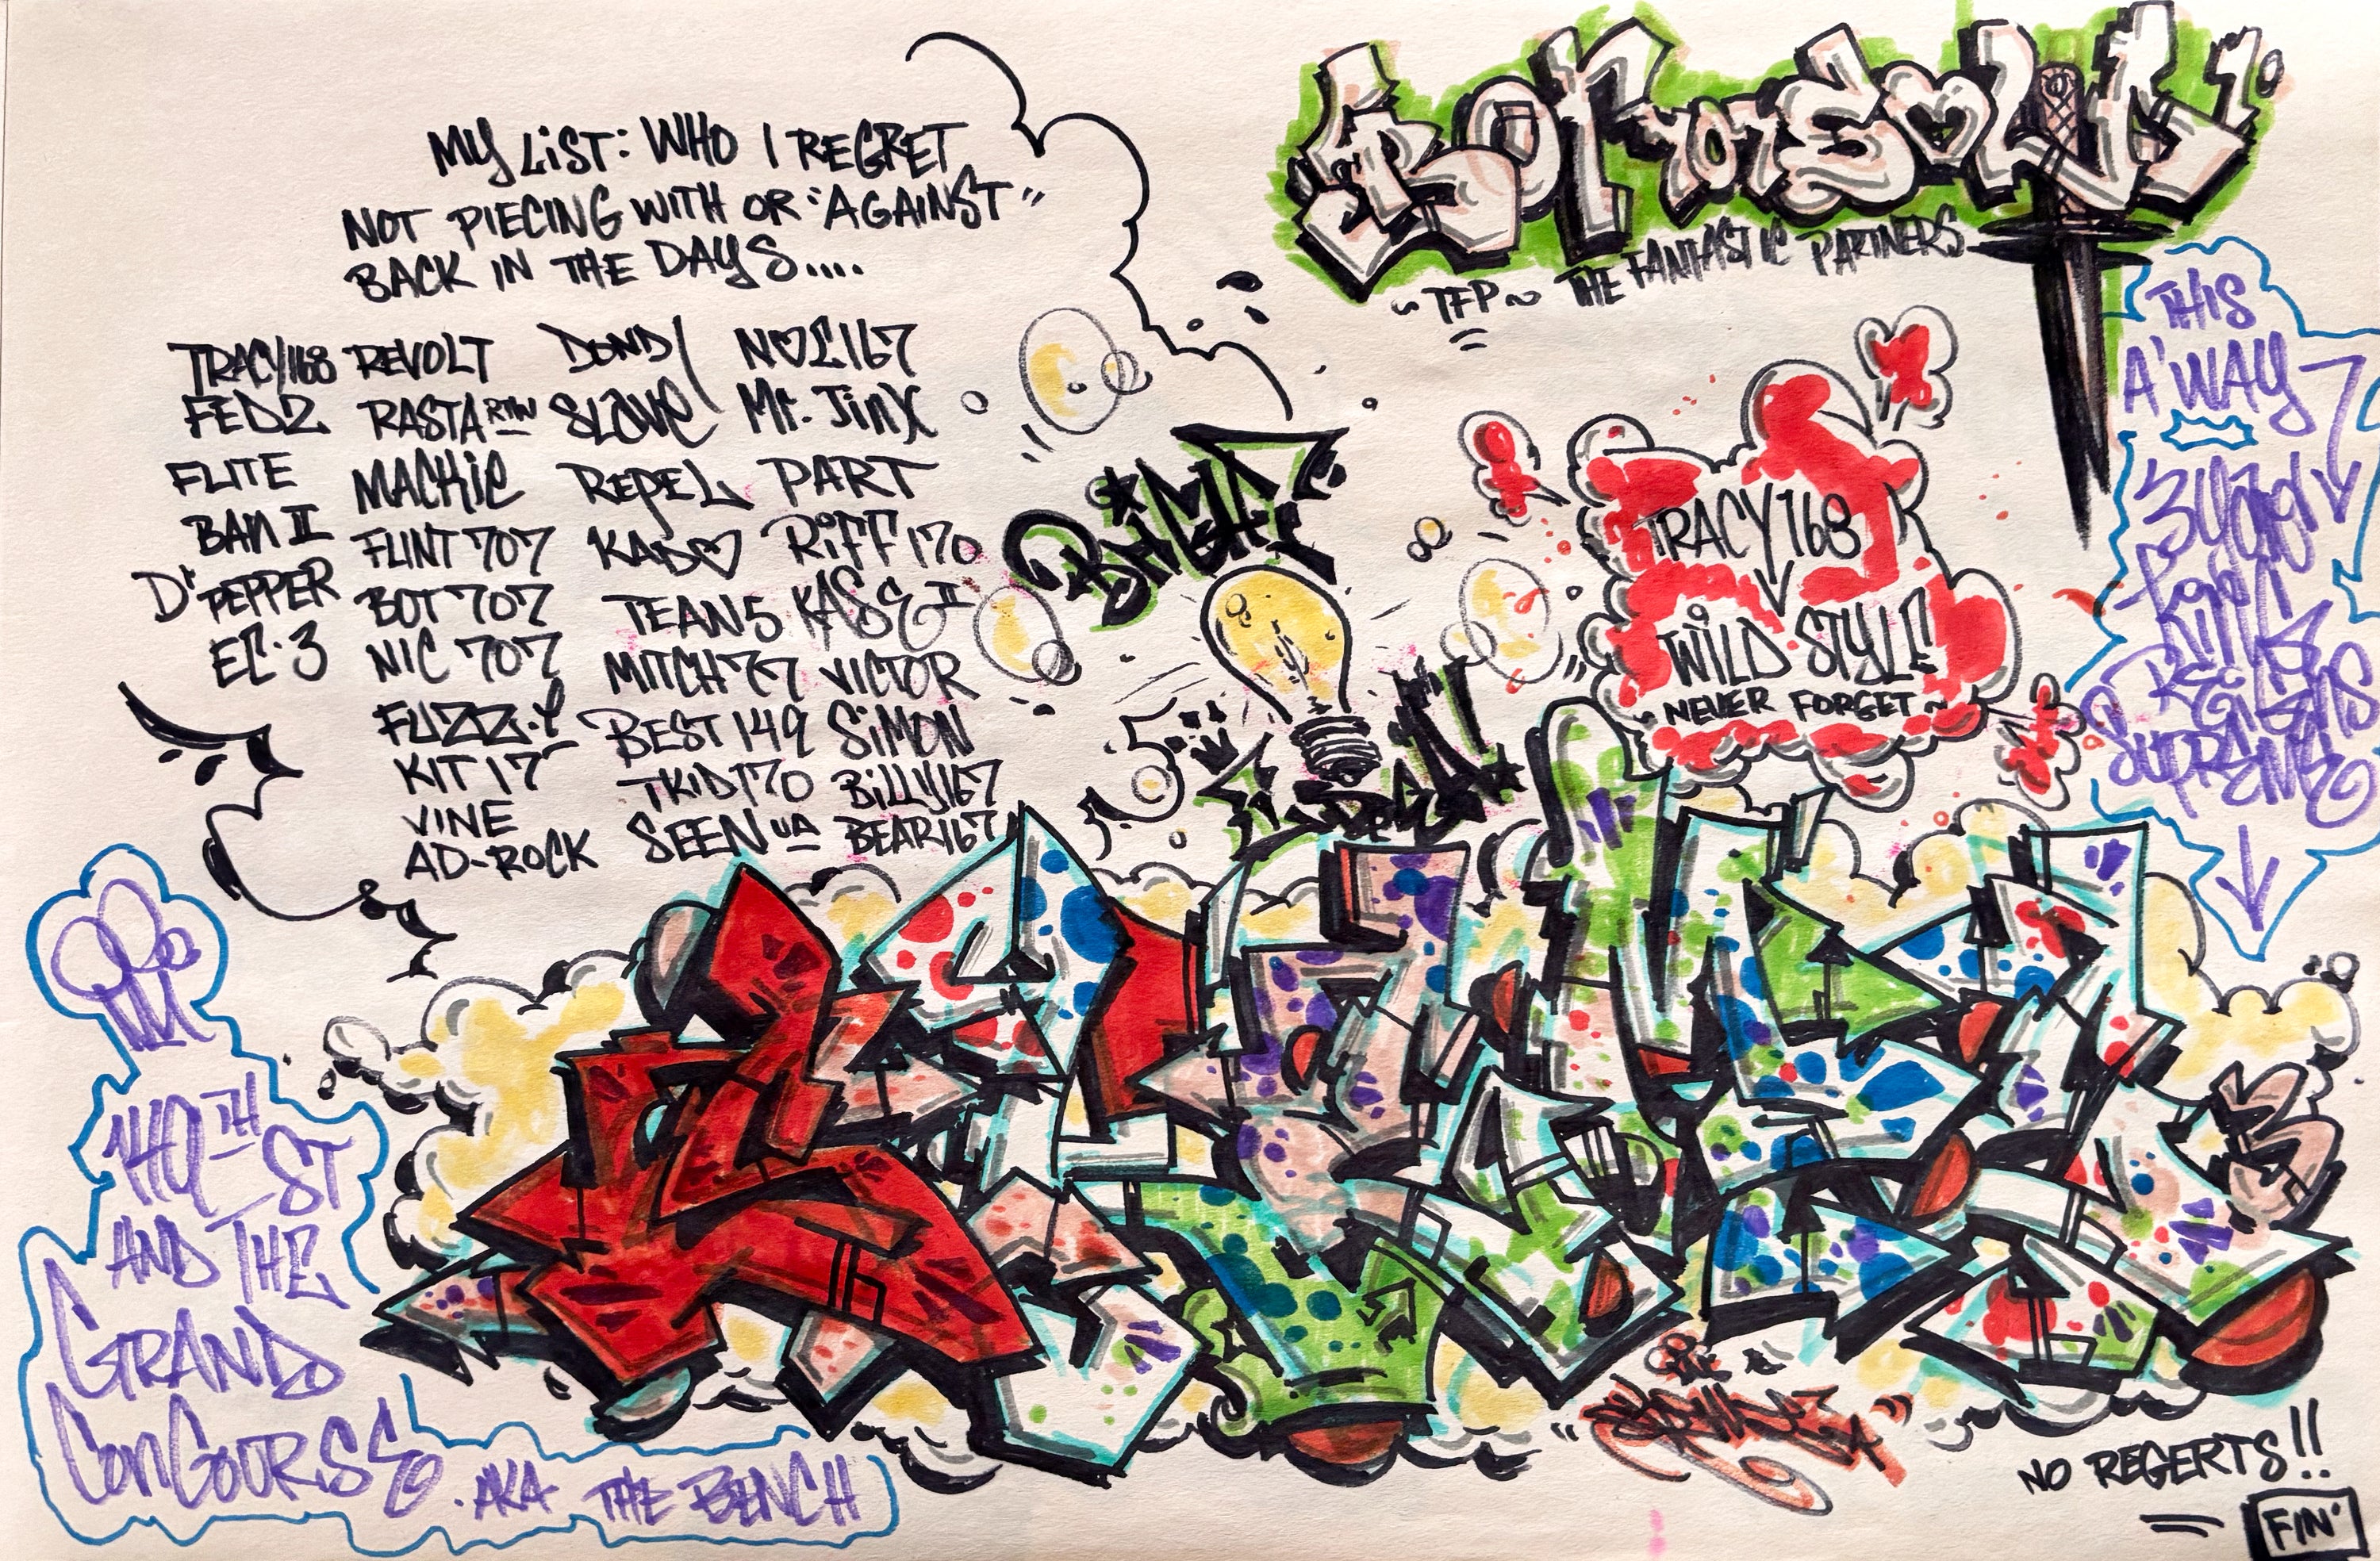 MY LiST: WHO I REGRET
NOT PIECING WITH OR "AGAINST"
BACK IN THE DAYS....
TRACY168 REVOLT DONDI NOC167
FED2 RASTA RTW SLAVE Mr. JinX
FLITE MACKiE REPEL PART
BAN II FLINT 707 KADO RiFF 170
Dr PEPPER BOT 707 TEAN5 KASE II
EC·3 NIC 707 MITCH77 VICTOR
FUZZ.. BEST 149 SiMON
KIT 17 TKID170 BiLLY167
VINE SEEN UA BEAR167
AD-ROCK
~ TFP ~ THE FANTASTIC PARTNERS
BRIGHT
IDEA!
TRACY 168
WiLD STYLE
~ NEVER FORGET ~
THIS
A'WAY
SUPREME
149TH ST
AND THE
GRAND
CONCOURSE
. AKA THE BENCH
NO REGERTS!!
FIN'